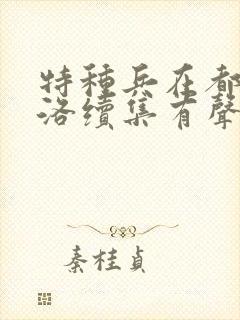 特種兵在都
洛續集有聲
秦桂貞